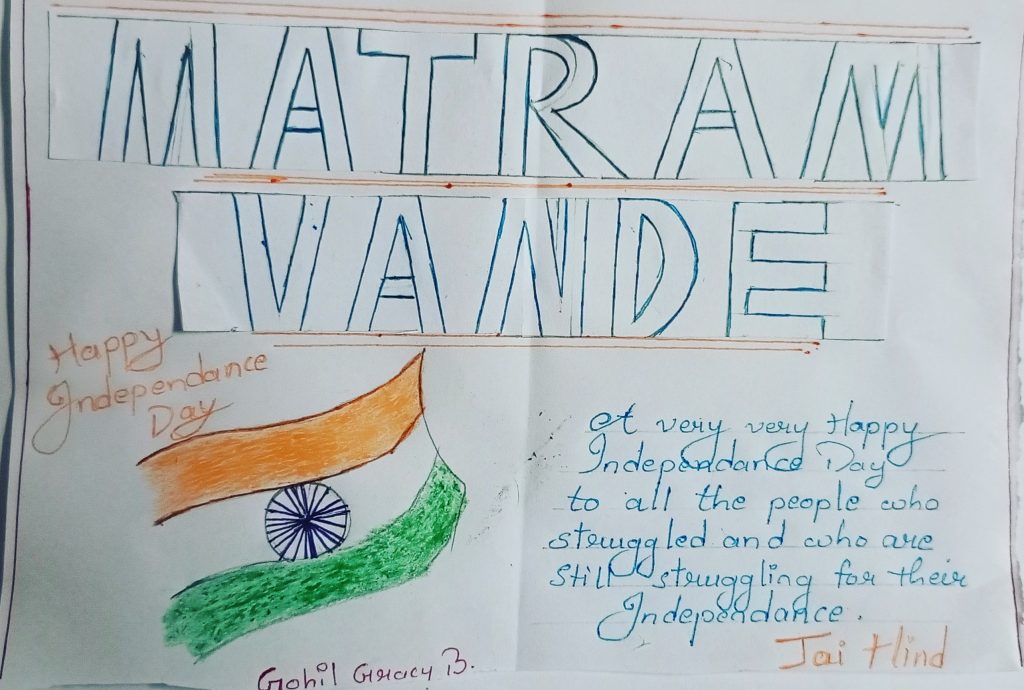 MATRAM
VANDE
Happy
Independance
Day
A very very Happy
Independance Day
to all the people who
struggled and who are
Still struggling for their
Independance.
Jai Hind
Gohil Gracy B.